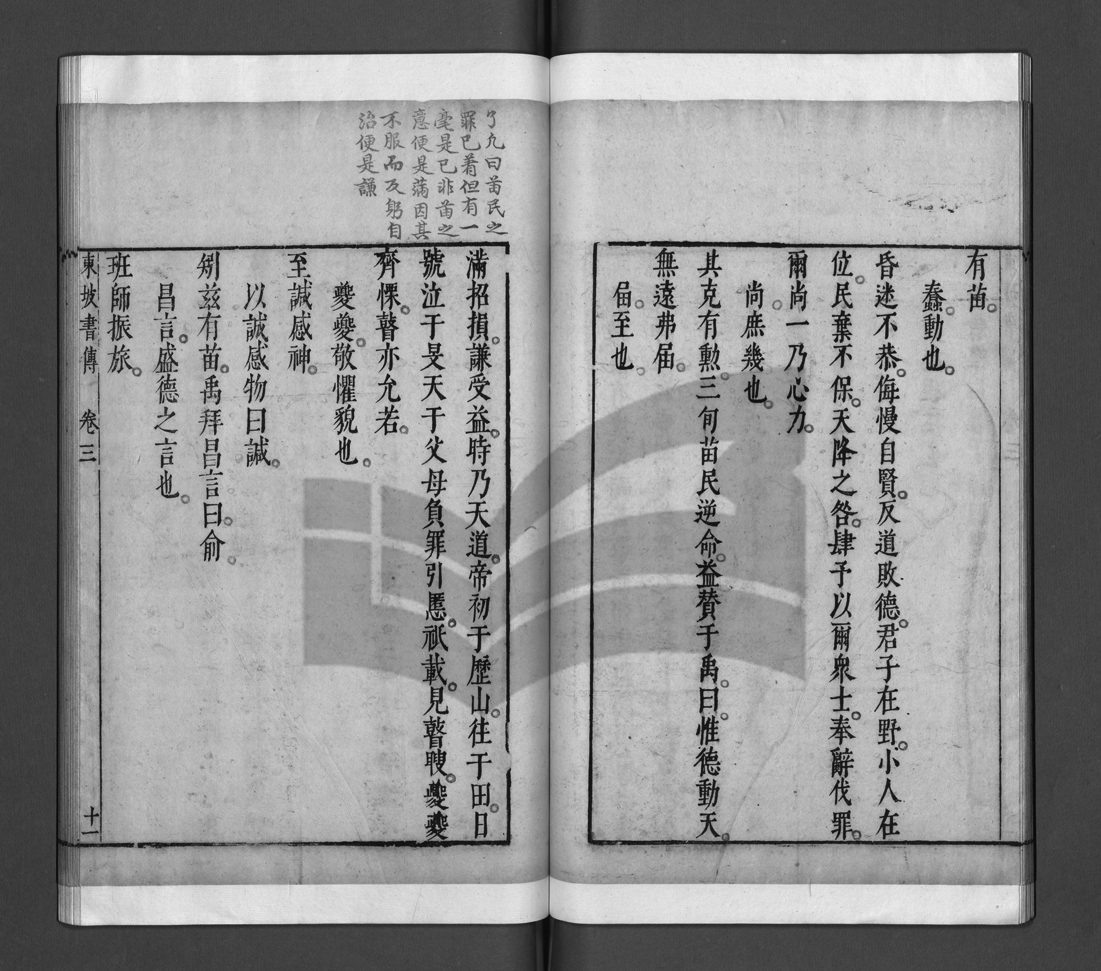 有苗。
蠢動也。
昏迷不恭。侮慢自賢。反道敗德。君子在野。小人在
位。民棄不保。天降之咎。肆予以爾衆士。奉辭伐罪。
爾尚一乃心力。
尚庶幾也。
其克有勲。三旬苗民逆命。益贊于禹。曰。惟德動天。
無遠弗届。
届。至也。
了凡曰苗民之
罪已著但有一
毫是已非苗之
意便是滿因其
不服而反躬自
治便是謙
滿招損。謙受益。時乃天道。帝初于歷山。往于田。日
號泣于旻天于父母負罪引慝。祇載。見瞽瞍。夔夔
齊慄。瞽亦允若。
夔夔。敬懼貌也。
至諴感神。
以誠感物曰諴。
矧茲有苗。禹拜昌言。曰。俞。
昌言。盛德之言也。
班師振旅。
東坡書傳 卷三 十一